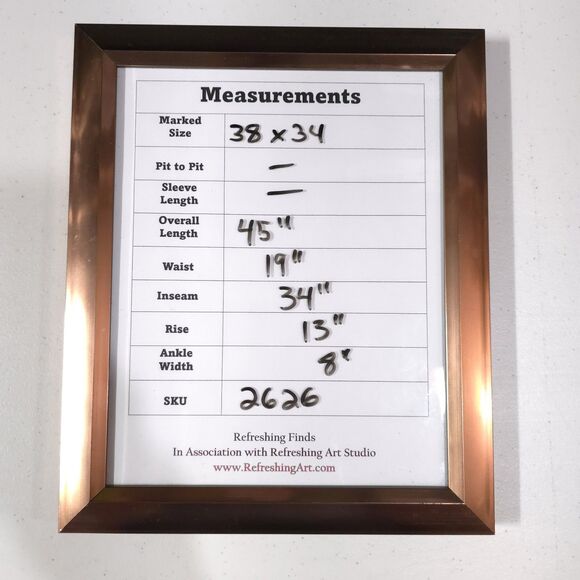 Measurements
Marked Size 38 x 34
Pit to Pit —
Sleeve Length —
Overall Length 45"
Waist 19"
Inseam 34"
Rise 13"
Ankle Width 8"
SKU 2626
Refreshing Finds
In Association with Refreshing Art Studio
www.RefreshingArt.com